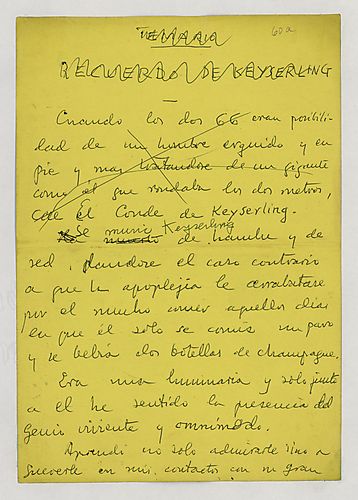 TEMARIO
60a
RECUERDO DE KEYSERLING
Cuando los dos 66 eran posibili-
dad de un hombre erguido y en
pie y mas tratandose de un gigante
como el que rondaba los dos metros,
cae El Conde de Keyserling.
Se murió Keyserling
de hambre y de
sed, dandose el caso contrario
a que la apoplejia le arrebatase
por el mucho comer aquellos dias
en que él solo se comía un pavo
y se bebía dos botellas de champagne.
Era una luminaria y solo junto
a el he sentido la presencia del
genio viviente y omnímodo.
Aprendí no solo admirarle sino a
en mis contactos con su gran